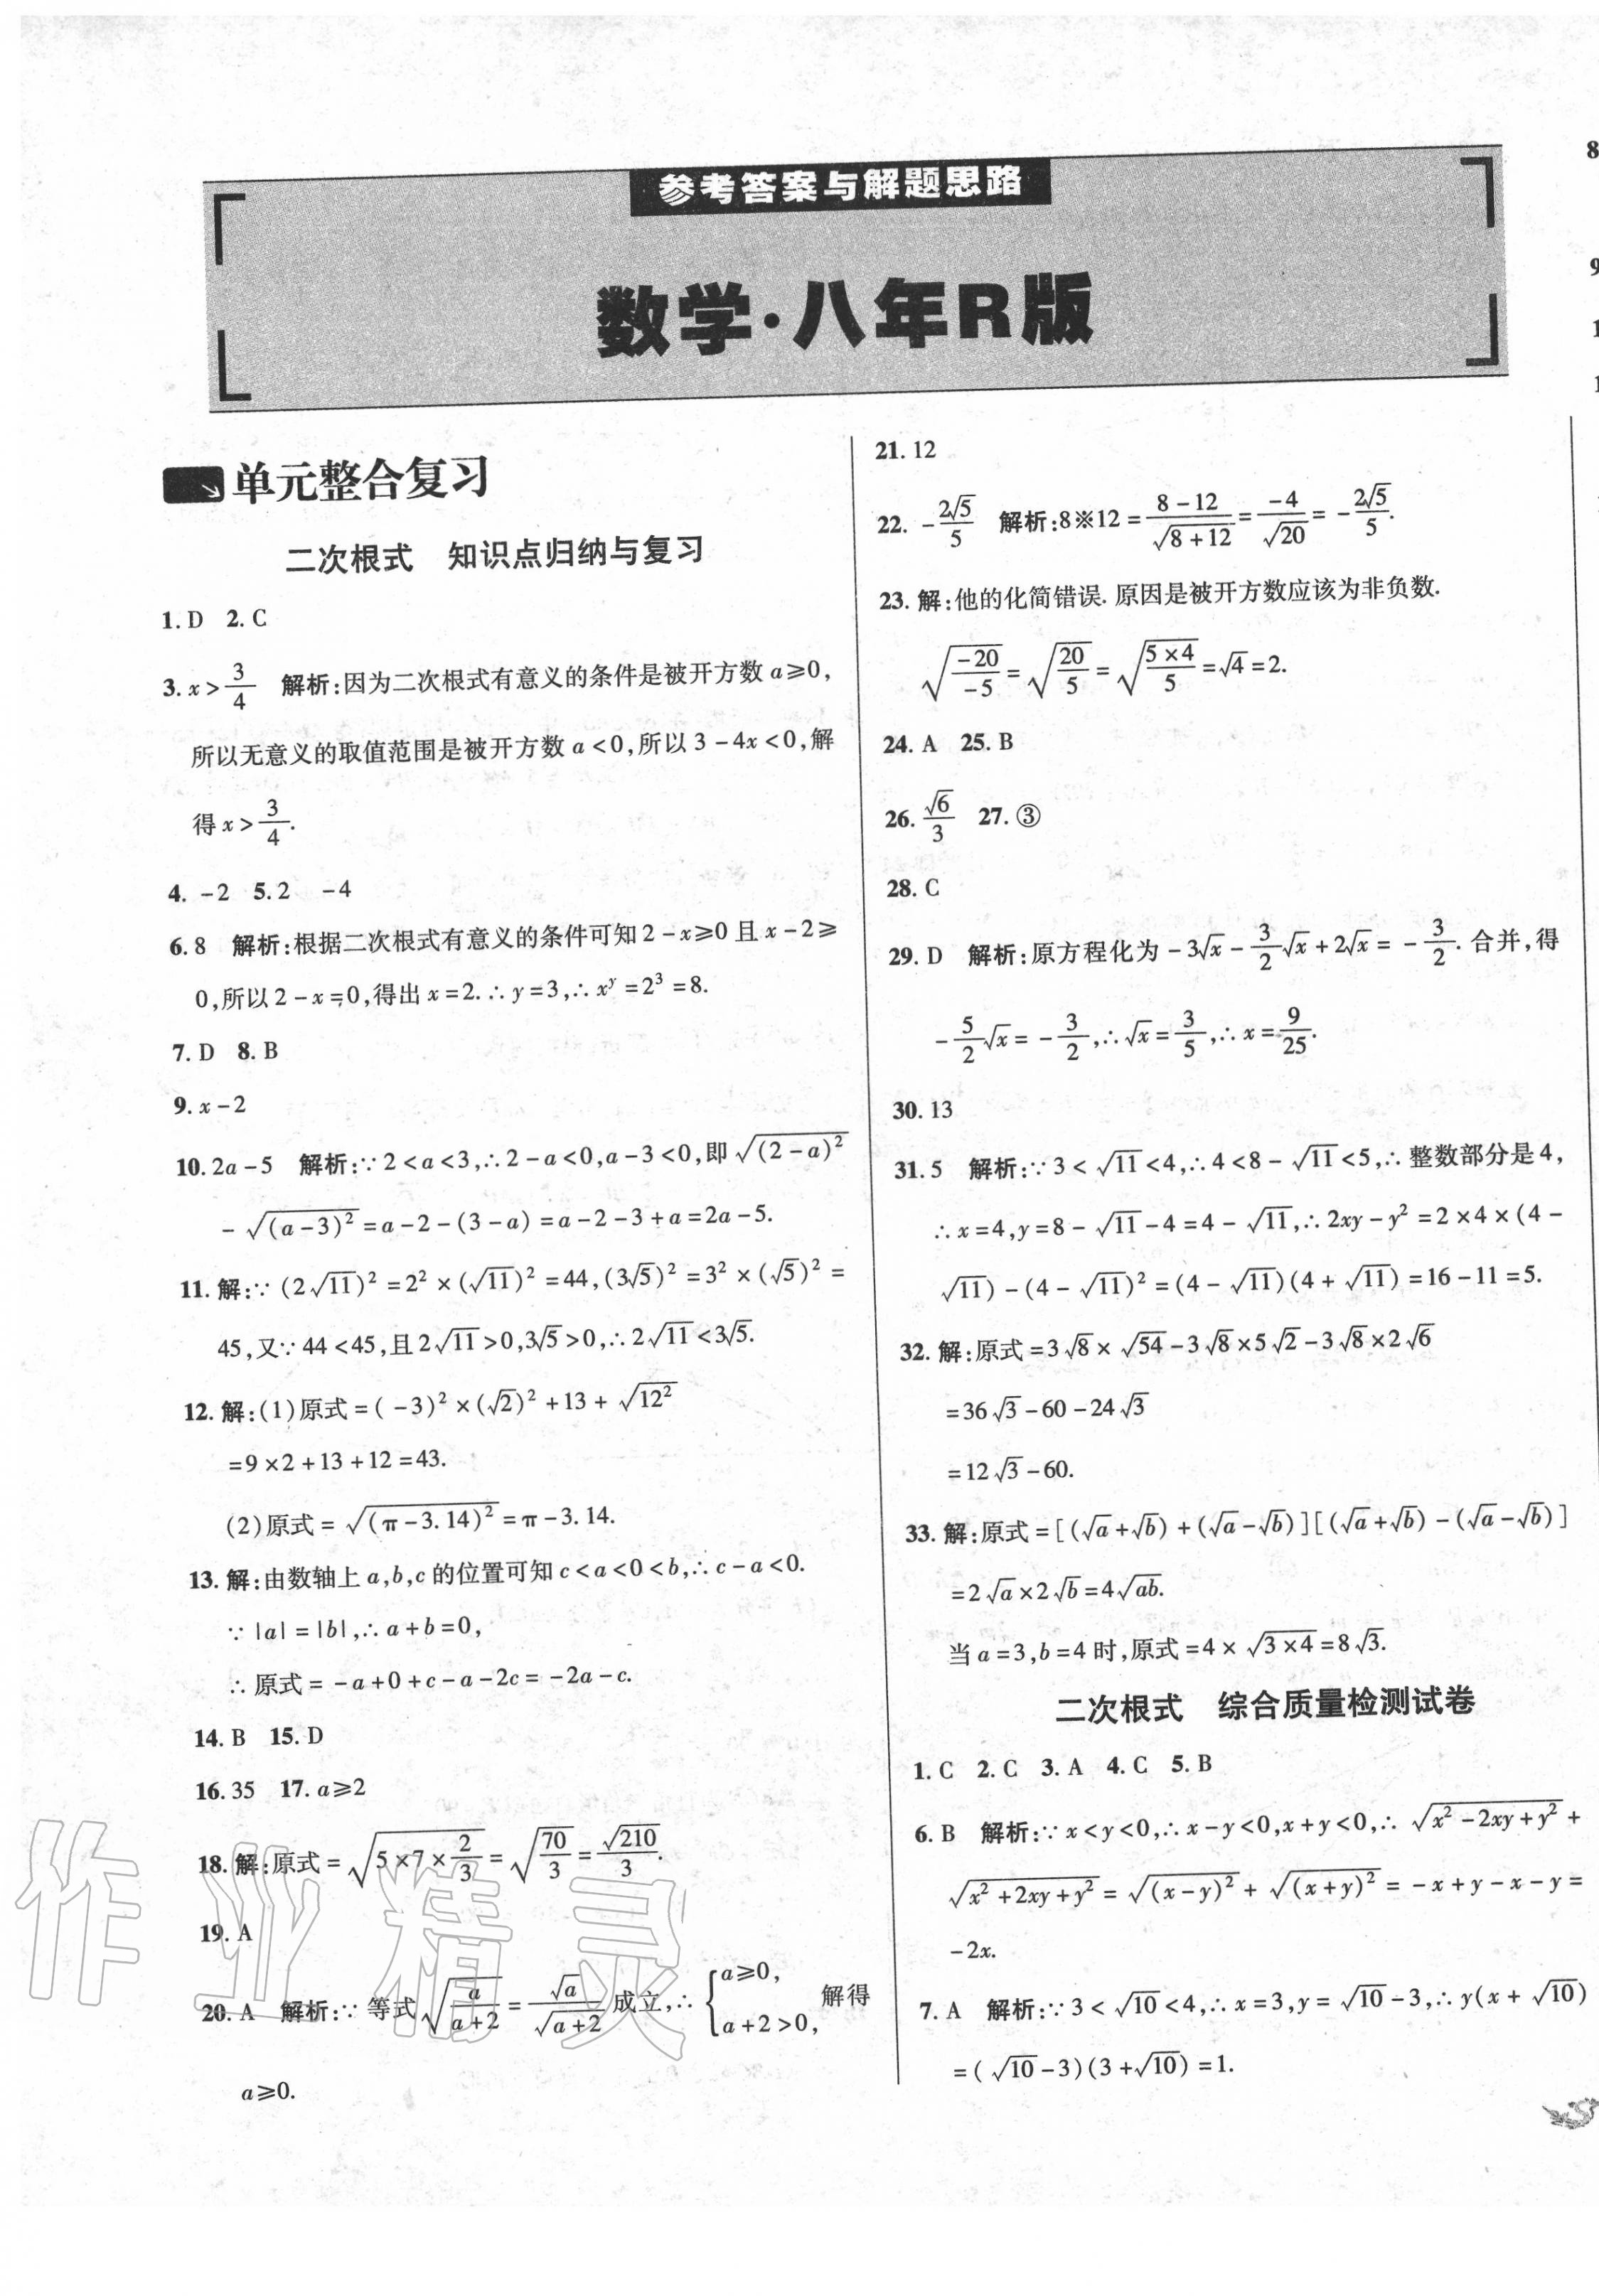 参考答案与解题思路
数学·八年R版
单元整合复习
二次根式　知识点归纳与复习
1. D　2. C
3. x > 3/4　解析:因为二次根式有意义的条件是被开方数 a≥0,
所以无意义的取值范围是被开方数 a<0,所以 3-4x<0,解
得 x > 3/4.
4. -2　5. 2　-4
6. 8　解析:根据二次根式有意义的条件可知 2-x≥0 且 x-2≥
0,所以 2-x=0,得出 x=2.∴y=3,∴x^y=2³=8.
7. D　8. B
9. x-2
10. 2a-5　解析:∵2<a<3,∴2-a<0,a-3<0,即√((2-a)²)
-√((a-3)²)=a-2-(3-a)=a-2-3+a=2a-5.
11. 解:∵(2√11)²=2²×(√11)²=44,(3√5)²=3²×(√5)²=
45,又∵44<45,且 2√11>0,3√5>0,∴2√11<3√5.
12. 解:(1)原式=(-3)²×(√2)²+13+√(12²)
=9×2+13+12=43.
(2)原式=√((π-3.14)²)=π-3.14.
13. 解:由数轴上 a,b,c 的位置可知 c<a<0<b,∴c-a<0.
∵|a|=|b|,∴a+b=0,
∴原式=-a+0+c-a-2c=-2a-c.
14. B　15. D
16. 35　17. a≥2
18. 解:原式=√(5×7×2/3)=√(70/3)=√210/3.
19. A
20. A　解析:∵等式√(a/(a+2))=√a/√(a+2)成立,∴{a≥0, a+2>0, 解得
a≥0.
21. 12
22. -2√5/5　解析:8※12=(8-12)/√(8+12)=-4/√20=-2√5/5.
23. 解:他的化简错误. 原因是被开方数应该为非负数.
√(-20/-5)=√(20/5)=√(5×4/5)=√4=2.
24. A　25. B
26. √6/3　27. ③
28. C
29. D　解析:原方程化为-3√x-3/2√x+2√x=-3/2. 合并,得
-5/2√x=-3/2,∴√x=3/5,∴x=9/25.
30. 13
31. 5　解析:∵3<√11<4,∴4<8-√11<5,∴整数部分是 4,
∴x=4,y=8-√11-4=4-√11,∴2xy-y²=2×4×(4-
√11)-(4-√11)²=(4-√11)(4+√11)=16-11=5.
32. 解:原式=3√8×√54-3√8×5√2-3√8×2√6
=36√3-60-24√3
=12√3-60.
33. 解:原式=[(√a+√b)+(√a-√b)][(√a+√b)-(√a-√b)]
=2√a×2√b=4√(ab).
当 a=3,b=4 时,原式=4×√(3×4)=8√3.
二次根式　综合质量检测试卷
1. C　2. C　3. A　4. C　5. B
6. B　解析:∵x<y<0,∴x-y<0,x+y<0,∴√(x²-2xy+y²)+
√(x²+2xy+y²)=√((x-y)²)+√((x+y)²)=-x+y-x-y=
-2x.
7. A　解析:∵3<√10<4,∴x=3,y=√10-3,∴y(x+√10)
=(√10-3)(3+√10)=1.
作业精灵
8
9
1
1